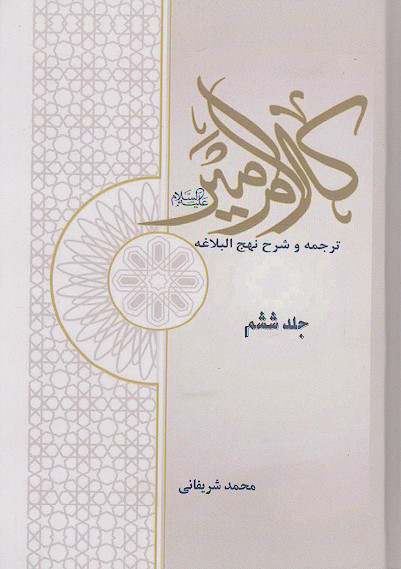 کلام امیر
علیه‌السلام
ترجمه و شرح نهج البلاغه
جلد ششم
محمد شریفانی